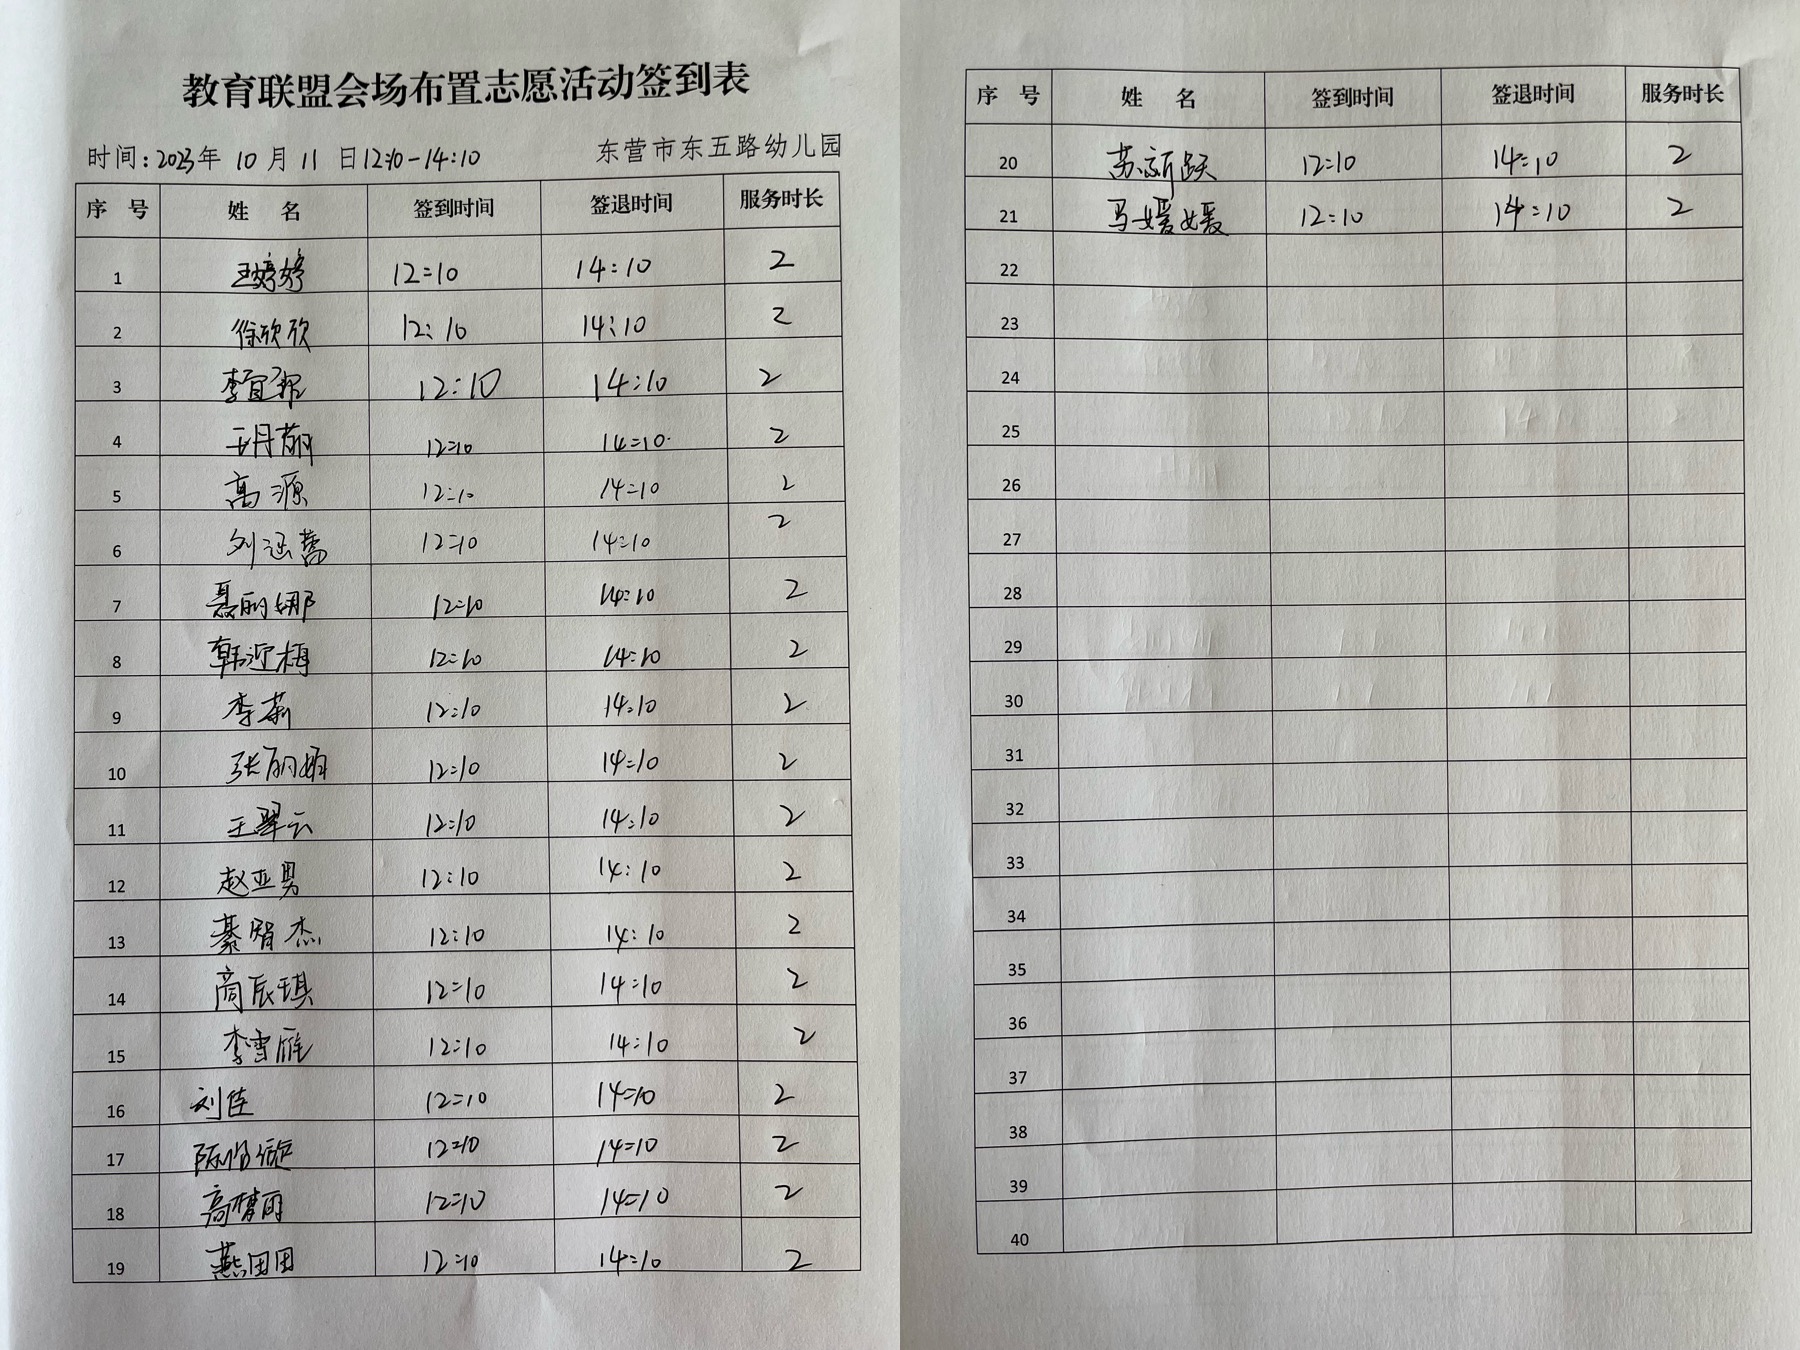 教育联盟会场布置志愿活动签到表
时间:2023年 10 月 11 日12:10-14:10 东营市东五路幼儿园
序 号 姓 名 签到时间 签退时间 服务时长
1 王婷婷 12:10 14:10 2
2 徐欣欣 12:10 14:10 2
3 李宜 12:10 14:10 2
4 王丹 12:10 14:10 2
5 高源 12:10 14:10 2
6 刘涵 12:10 14:10 2
7 聂丽娜 12:10 14:10 2
8 韩迎梅 12:10 14:10 2
9 李莉 12:10 14:10 2
10 张丽娟 12:10 14:10 2
11 王翠云 12:10 14:10 2
12 赵亚男 12:10 14:10 2
13 綦智杰 12:10 14:10 2
14 商辰琪 12:10 14:10 2
15 李雪雁 12:10 14:10 2
16 刘佳 12:10 14:10 2
17 陈 12:10 14:10 2
18 高梦雨 12:10 14:10 2
19 燕田田 12:10 14:10 2
序 号 姓 名 签到时间 签退时间 服务时长
20 苏新跃 12:10 14:10 2
21 马媛媛 12:10 14:10 2
22
23
24
25
26
27
28
29
30
31
32
33
34
35
36
37
38
39
40